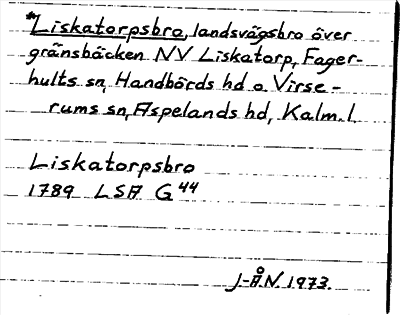 *Liskatorpsbro, landsvägsbro över
gränsbäcken NV Liskatorp, Fager-
hults sn, Handbörds hd o Virse-
rums sn, Aspelands hd, Kalm. l.
Liskatorpsbro
1789 LSA G44
J-Å.N. 1973.